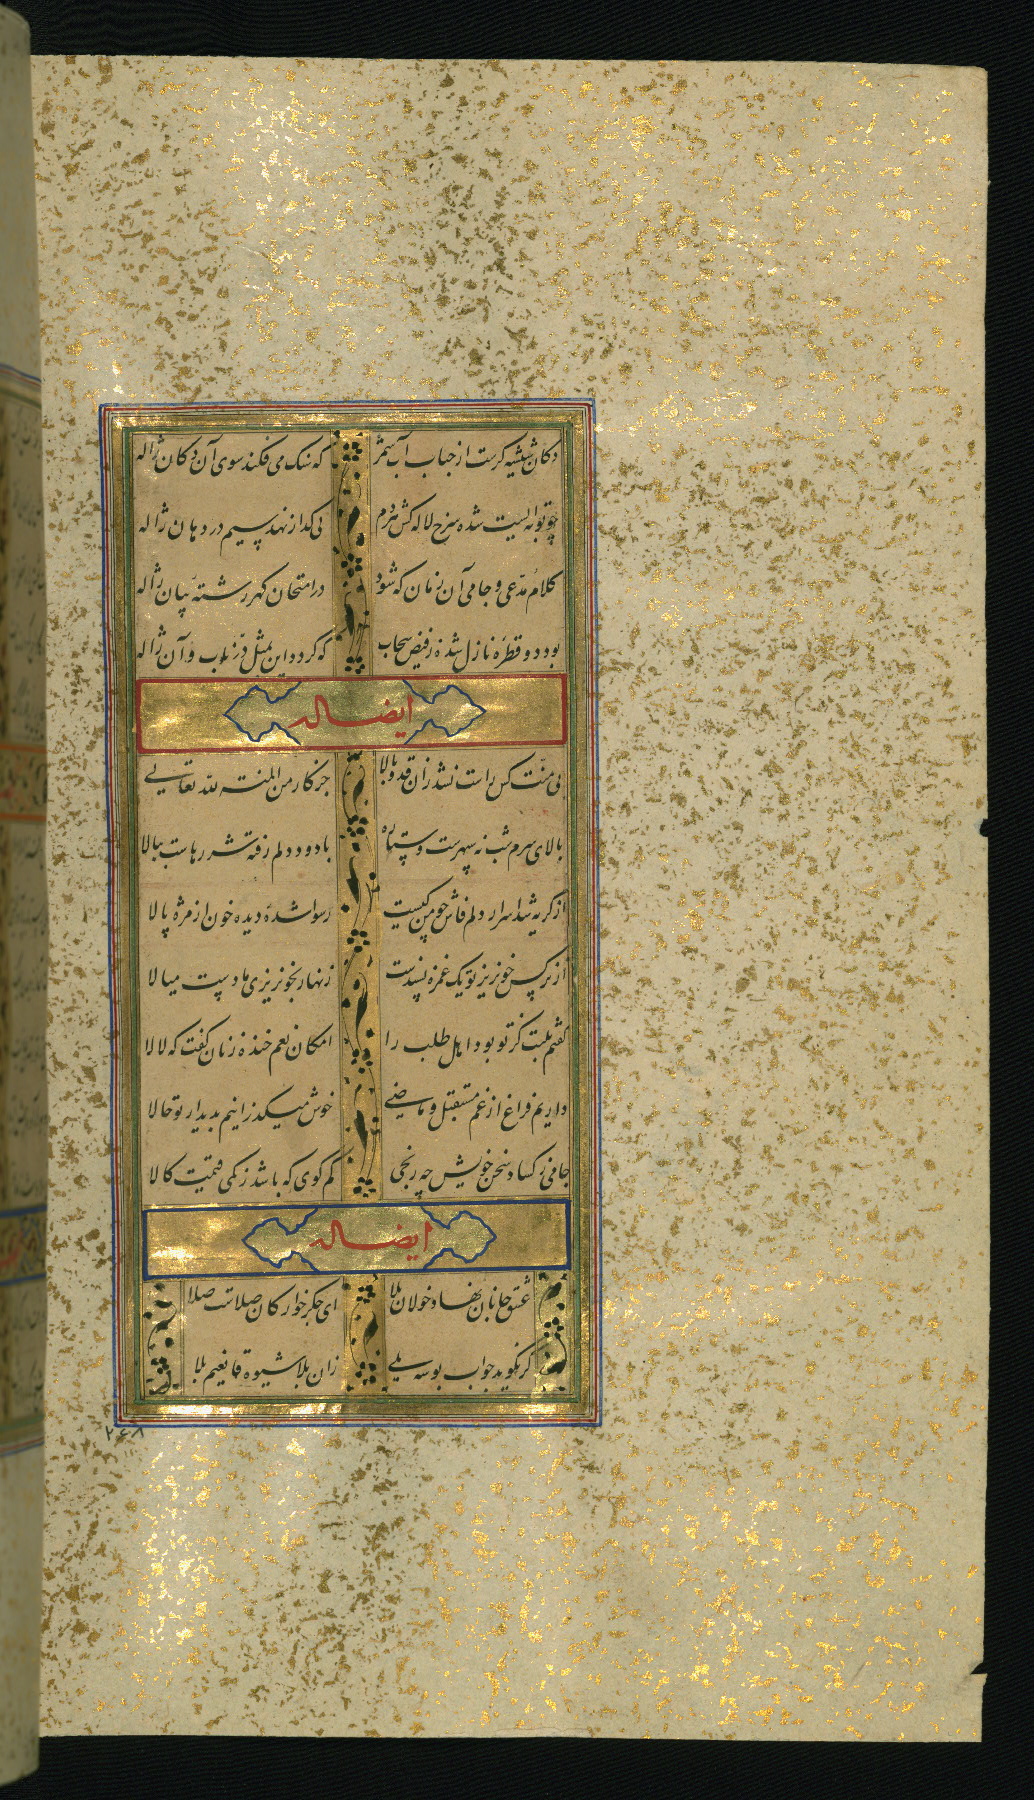 دکان شیشه کرست از حباب آب شمر که سنک می فکند سوی آن دکان ژاله
چو توبه ایست شده سرخ لاله کش هر دم بی کداز نهد سیم در دهان ژاله
کلام مدعی و جامی آن زمان که شود در امتحان کهر رشتهٔ بیان ژاله
بود دو قطرهٔ نازل شده ز فیض سحاب که کردد این بمثل در ناب و آن ژاله
ایضا له
بی منت کس راست نشد زان قد و بالا جز کار من المنة لله تعالی
بالای سرم شب نه سپهرست و ستاره با دود دلم رفته شررهاست ببالا
از کریه شد اسرار دلم فاش چو من کیست رسوا شدهٔ دیده خون از مژه پالا
از نرکس خونریز تو یک غمزه پسندست زنهار بخونریزی ما دست میالا
کفتم بلبت کز تو بود اهل طلب را امکان نعم خنده زنان کفت که لا لا
داریم فراغ از غم مستقبل و ماضی خوش میکذرانیم بدیدار تو حالا
جامی ز کساد سخن خویش چه رنجی کم کوی که باشد ز کمی قیمت کالا
ایضا له
عشق جانان نهاد خوان بلا ای جکر خوارکان صلاست صلا
کر نکوید جواب بوسه بلی زان بلا شیوه قانعیم بلا
۲۶۸